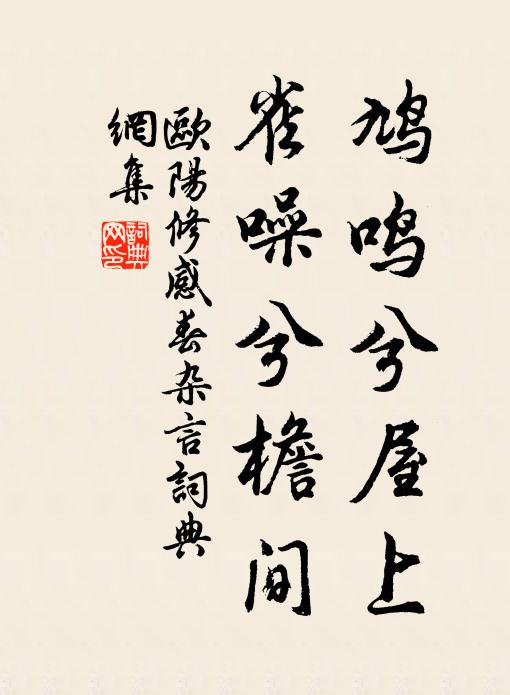 鸠鸣兮屋上
雀噪兮檐间
歐陽修感春杂言詞典
網集
詞典
网印